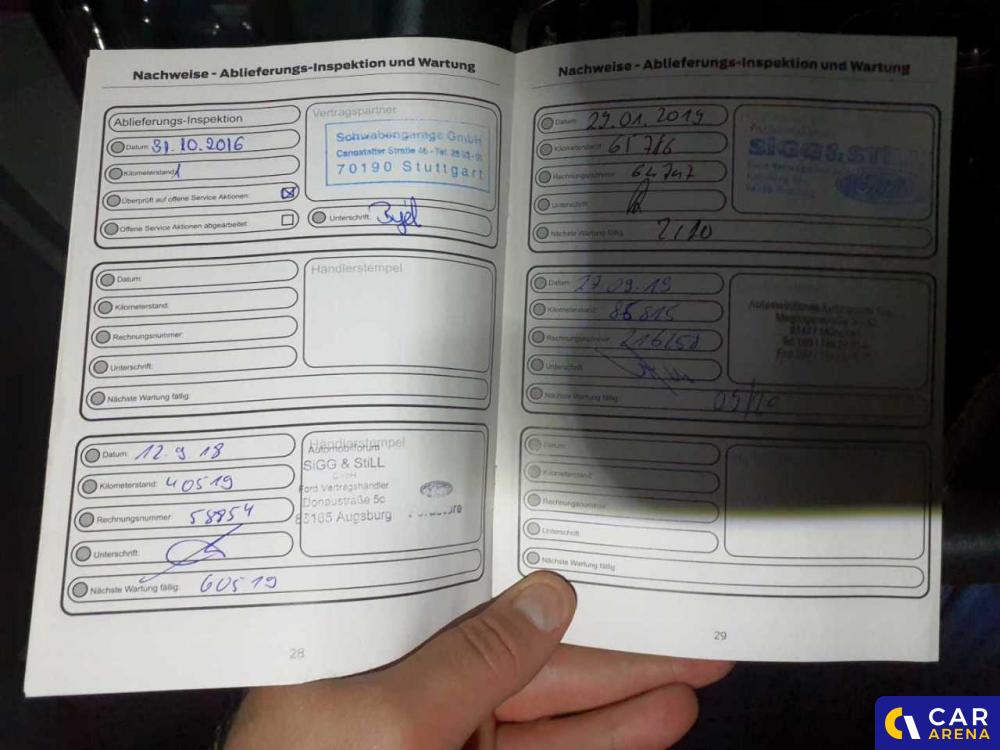 Nachweise - Ablieferungs-Inspektion und Wartung
Ablieferungs-Inspektion
Datum: 31.10.2016
Kilometerstand: 1
Überprüft auf offene Service Aktionen:
Offene Service Aktionen abgearbeitet:
Vertragspartner
Schwabengarage GmbH
Cannstatter Straße 46 - Tel.
70190 Stuttgart
Unterschrift:
Datum:
Kilometerstand:
Rechnungsnummer:
Unterschrift:
Nächste Wartung fällig:
Händlerstempel
Datum: 12.9 18
Kilometerstand: 40519
Rechnungsnummer: 58854
Unterschrift:
Nächste Wartung fällig: 60519
Händlerstempel
Automobilforum
SiGG & StiLL
GmbH
Ford Vertragshändler
Donaustraße 5c
86165 Augsburg
28
Nachweise - Ablieferungs-Inspektion und Wartung
Datum: 29.01.2019
Kilometerstand: 65786
Rechnungsnummer: 64747
Unterschrift:
Nächste Wartung fällig:
SiGG & StiLL
Datum: 27.09.19
Kilometerstand: 86815
Rechnungsnummer: 216258
Unterschrift:
Nächste Wartung fällig:
Datum:
Kilometerstand:
Rechnungsnummer:
Unterschrift:
Nächste Wartung fällig:
29
CAR
ARENA